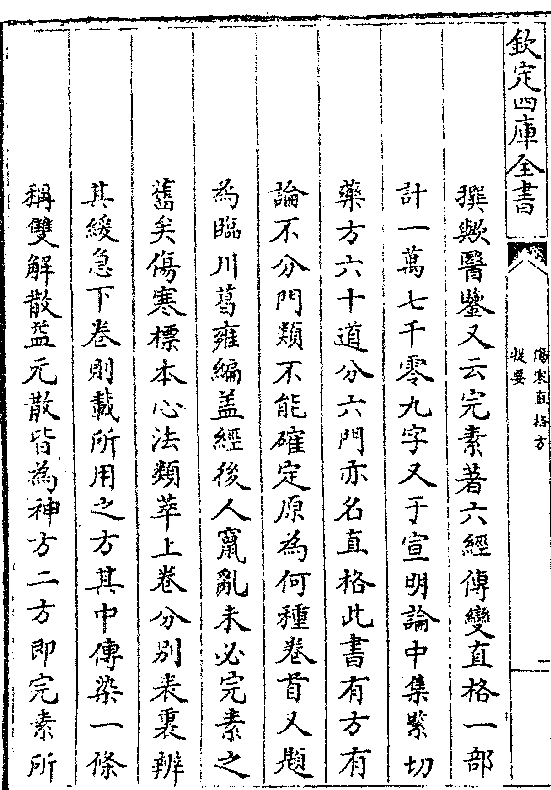 欽定四庫全書
傷寒直格方
提要
撰歟醫鑒又云完素著六經傳變直格一部
計一萬七千零九字又于宣明論中集緊切
藥方六十道分六門亦名直格此書有方有
論不分門類不能確定原為何種卷首又題
為臨川葛雍編盖經後人竄亂未必完素之
舊矣傷寒標本心法類萃上卷分别表裏辨
其緩急下卷則載所用之方其中傳染一條
稱雙解散益元散皆為神方二方即完素所